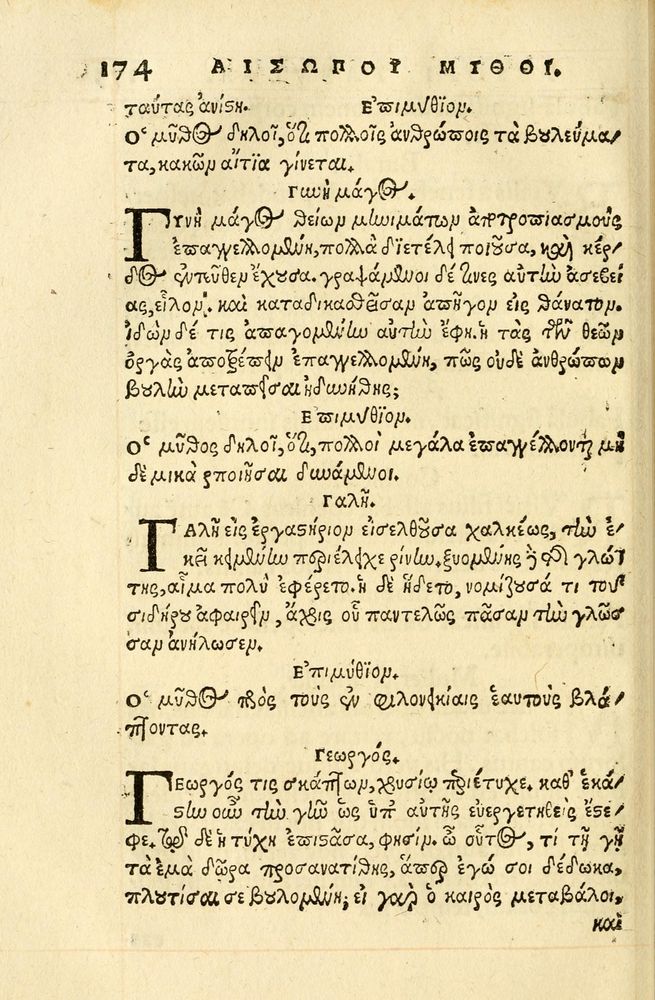 174 ΑΙΣΩΠΟΥ ΜΥΘΟΙ.
ταύτας ἀνίση. Ἐπιμύθιον.
Ὁ μῦθος δηλοῖ, ὅτι πολλοῖς ἀνθρώποις τὰ βουλεύμα-
τα, κακῶν αἴτια γίνεται.
Γυνὴ μάγος.
ΓΥνὴ μάγος θείων μηνιμάτων ἀποτροπιασμοὺς
ἐπαγγελλομένη, πολλὰ διετέλει ποιοῦσα, καὶ κέρ-
δος ἐντεῦθεν ἔχουσα. γραψάμενοι δέ τινες αὐτὴν ἀσεβεί
ας, εἷλον. καὶ καταδικασθεῖσαν ἀπῆγον εἰς θάνατον.
ἰδὼν δέ τις ἀπαγομένην αὐτὴν ἔφη. ἡ τὰς τῶν θεῶν
ὀργὰς ἀποτρέπειν ἐπαγγελλομένη, πῶς οὐδὲ ἀνθρώπων
βουλὴν μεταπεῖσαι ἠδυνήθης;
Ἐπιμύθιον.
Ὁ μῦθος δηλοῖ, ὅτι, πολλοὶ μεγάλα ἐπαγγέλλονται μη
δὲ μικρὰ ποιῆσαι δυνάμενοι.
Γαλῆ.
ΓΑλῆ εἰς ἐργαστήριον εἰσελθοῦσα χαλκέως, τὴν ἐ-
κεῖ κειμένην περιέλειχε ῥίνην. ξυομένης δὲ τῆς γλώτ
της, αἷμα πολὺ ἐφέρετο. ἡ δὲ ἥδετο, νομίζουσά τι τοῦ
σιδήρου ἀφαιρεῖν, ἄχρις οὗ παντελῶς πᾶσαν τὴν γλῶσ
σαν ἀνήλωσεν.
Ἐπιμύθιον.
Ὁ μῦθος πρὸς τοὺς ἐν φιλονεικίαις ἑαυτοὺς βλά-
πτοντας.
Γεωργός.
ΓΕωργός τις σκάπτων, χρυσίῳ περιέτυχε. καθ' ἑκά-
στην οὖν τὴν γῆν ὡς ὑπ' αὐτῆς εὐεργετηθεὶς ἔστε-
φε. τῷ δὲ ἡ τύχη ἐπιστᾶσα, φησίν. ὦ οὗτος, τί τῇ γῇ
τὰ ἐμὰ δῶρα προσανατίθης, ἅπερ ἐγώ σοι δέδωκα,
πλουτίσαι σε βουλομένη; εἰ γὰρ ὁ καιρὸς μεταβάλοι,
καὶ